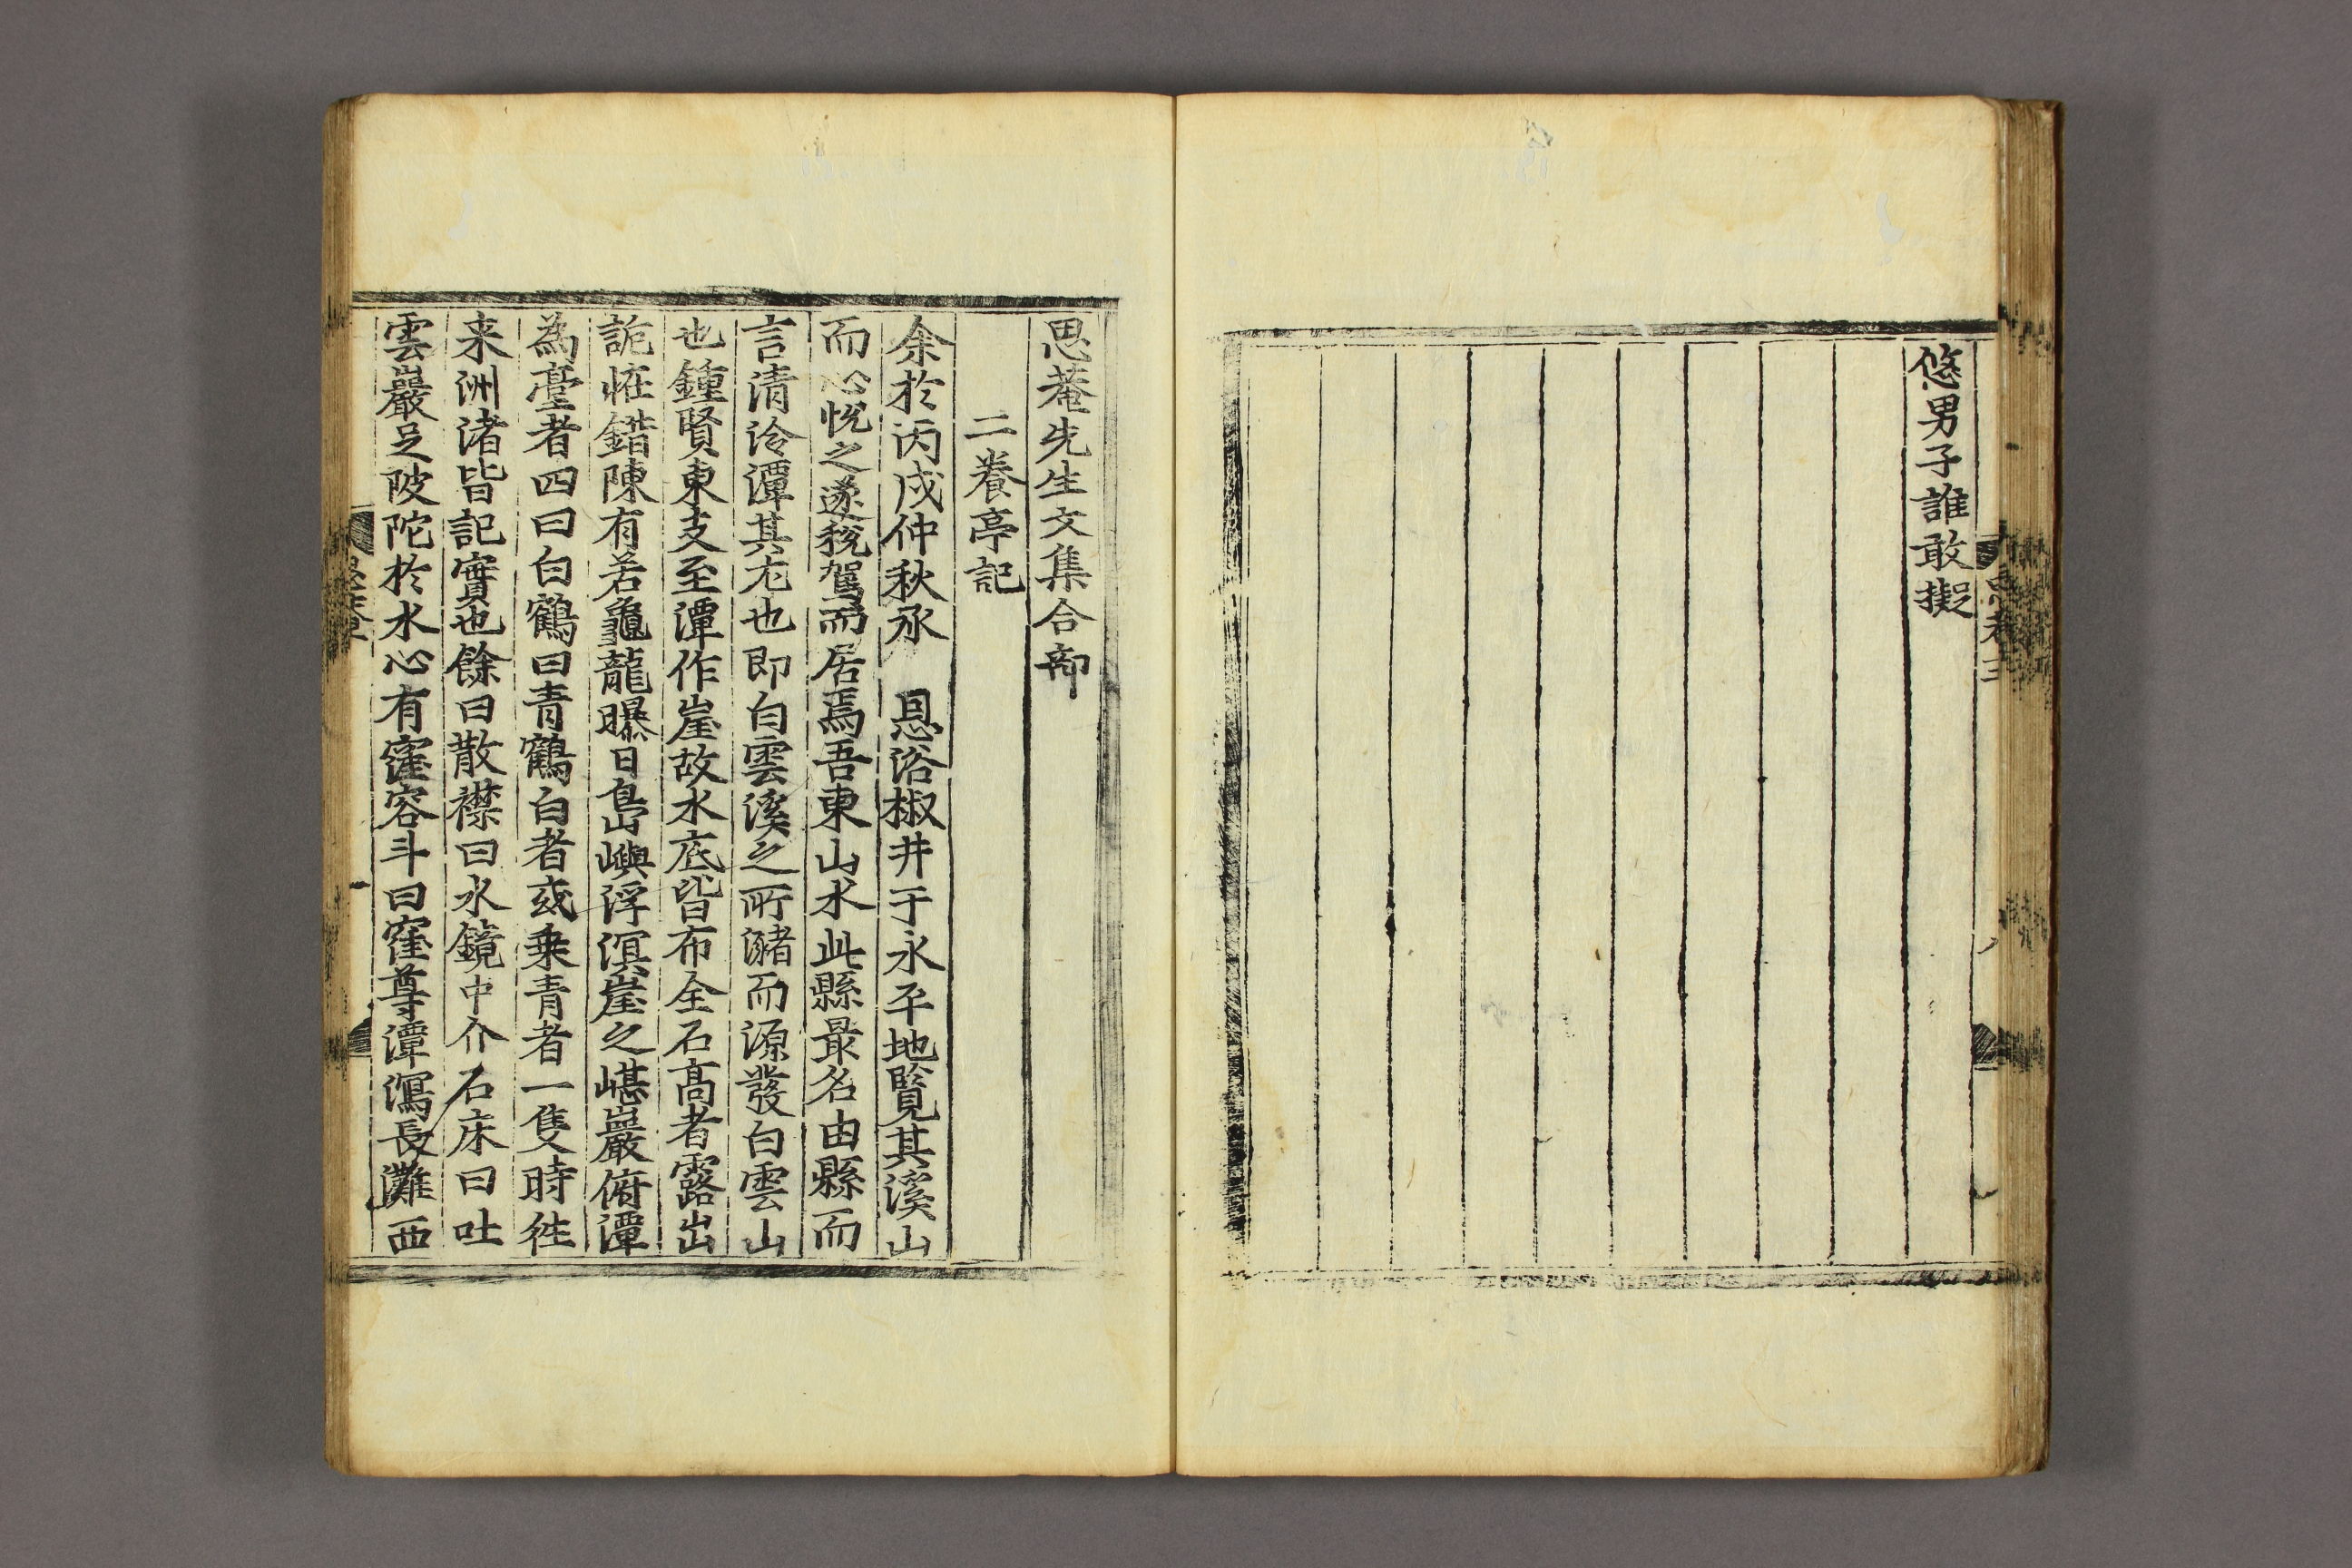 悠男子誰敢擬
思菴先生文集合部
二養亭記
余於丙戌仲秋承 恩浴椒井于永平地覧其溪山
而心悅之遂稅駕而居焉吾東山水此縣最名由縣而
言清泠潭其尤也即白雲溪之所瀦而源發白雲山
也鍾賢東支至潭作崖故水底皆布全石高者露出
詭恠錯陳有若龜龍曝日島嶼浮溟崖之嵁巖俯潭
為臺者四曰白鶴曰青鶴白者或乗青者一隻時徃
来洲渚皆記實也餘曰散襟曰水鏡中介石床曰吐
雲巖足陂陀於水心有窪容斗曰窪尊潭瀉長灘西